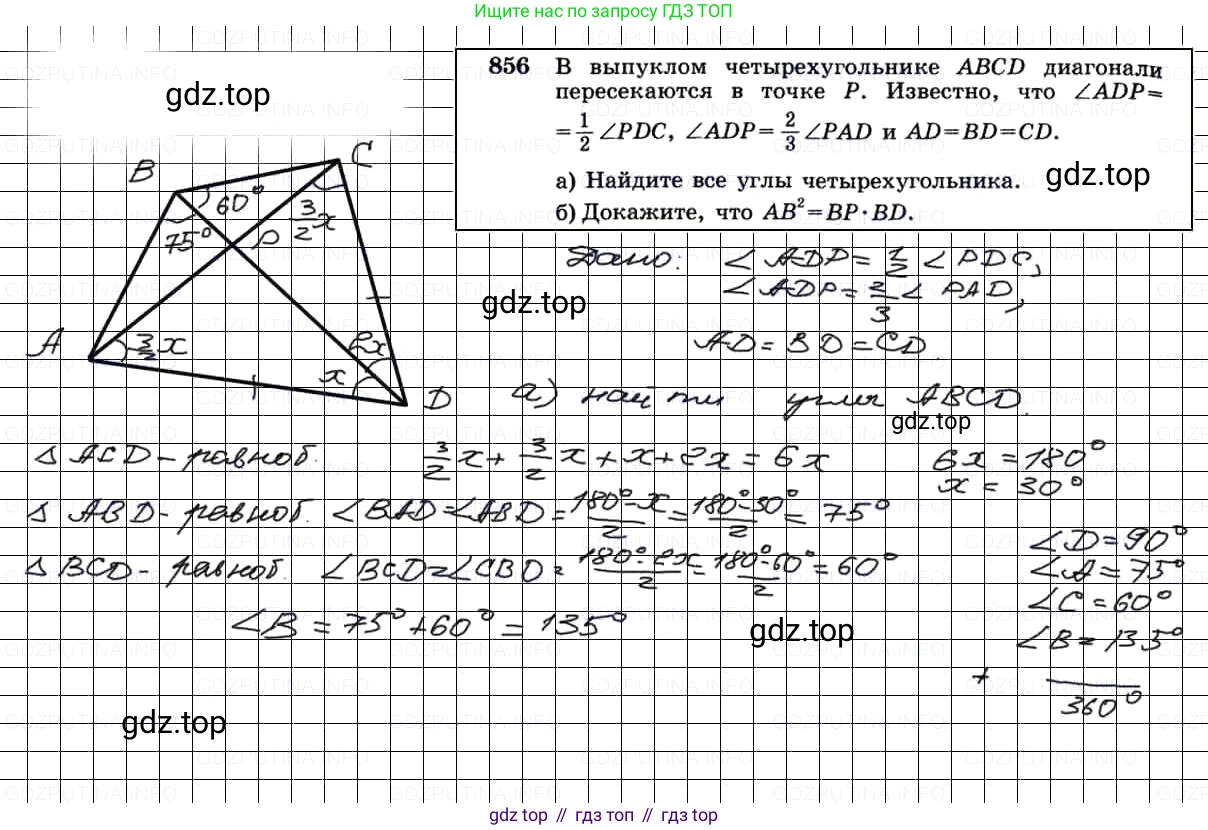 Ищите нас по запросу ГДЗ ТОП
gdz.top
856 В выпуклом четырехугольнике ABCD диагонали
пересекаются в точке P. Известно, что ∠ADP=
=1/2 ∠PDC, ∠ADP=2/3 ∠PAD и AD=BD=CD.
а) Найдите все углы четырехугольника.
б) Докажите, что AB²=BP·BD.
gdz.top
B
C
60°
75°
P
3/2x
A
3/2x
2x
x
D
Дано: ∠ADP=1/2∠PDC,
∠ADP=2/3∠PAD,
gdz.top
AD=BD=CD
а) найти углы ABCD.
gdz.top
△ACD-равноб. 3/2x+3/2x+x+2x=6x 6x=180°
x=30°
△ABD-равноб. ∠BAD=∠ABD=(180°-x)/2=(180°-30°)/2=75°
△BCD-равноб. ∠BCD=∠CBD=(180°-2x)/2=(180°-60°)/2=60°
∠B=75°+60°=135°
∠D=90°
∠A=75°
∠C=60°
∠B=135°
+
360°
gdz.top
gdz.top
GDZPUTINA.INFO
gdz top // гдз топ // gdz top